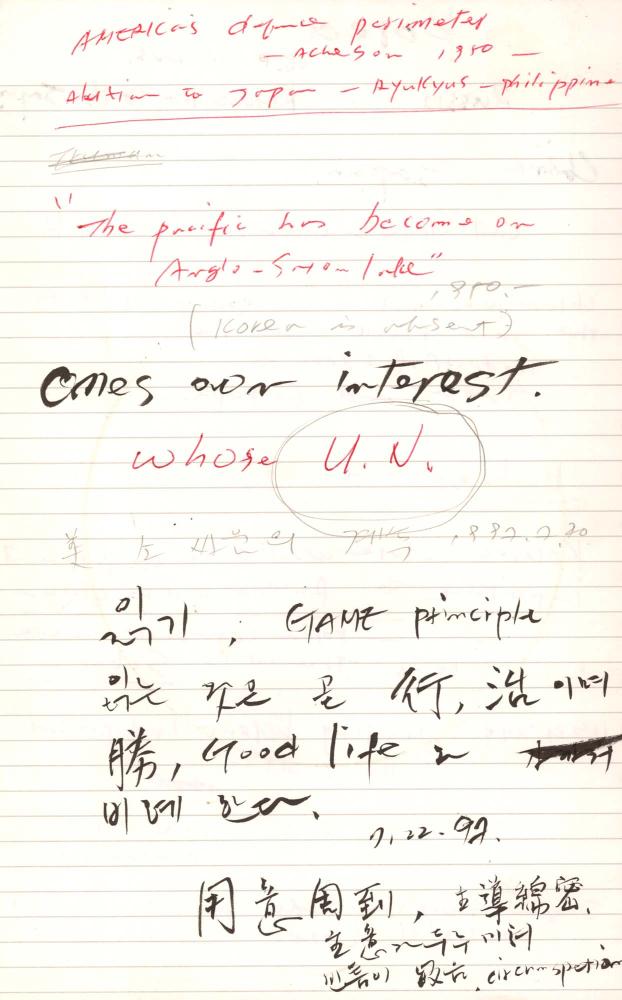 AMERICA's defence perimeter
— Acheson 1950 —
Alutian to Japan — Ryukyus — philippine
"The pacific has become an
Anglo-Saxon lake"
1950.—
(Korea is absent)
our interest.
whose U.N.
美 소 싸움의 계속 1992.7.30
읽기, GAME principle
읽는 것은 곧 行, 浩이며
勝, Good life
비례 한다.
7.22.92.
用意周到, 主導綿密.
circumspection